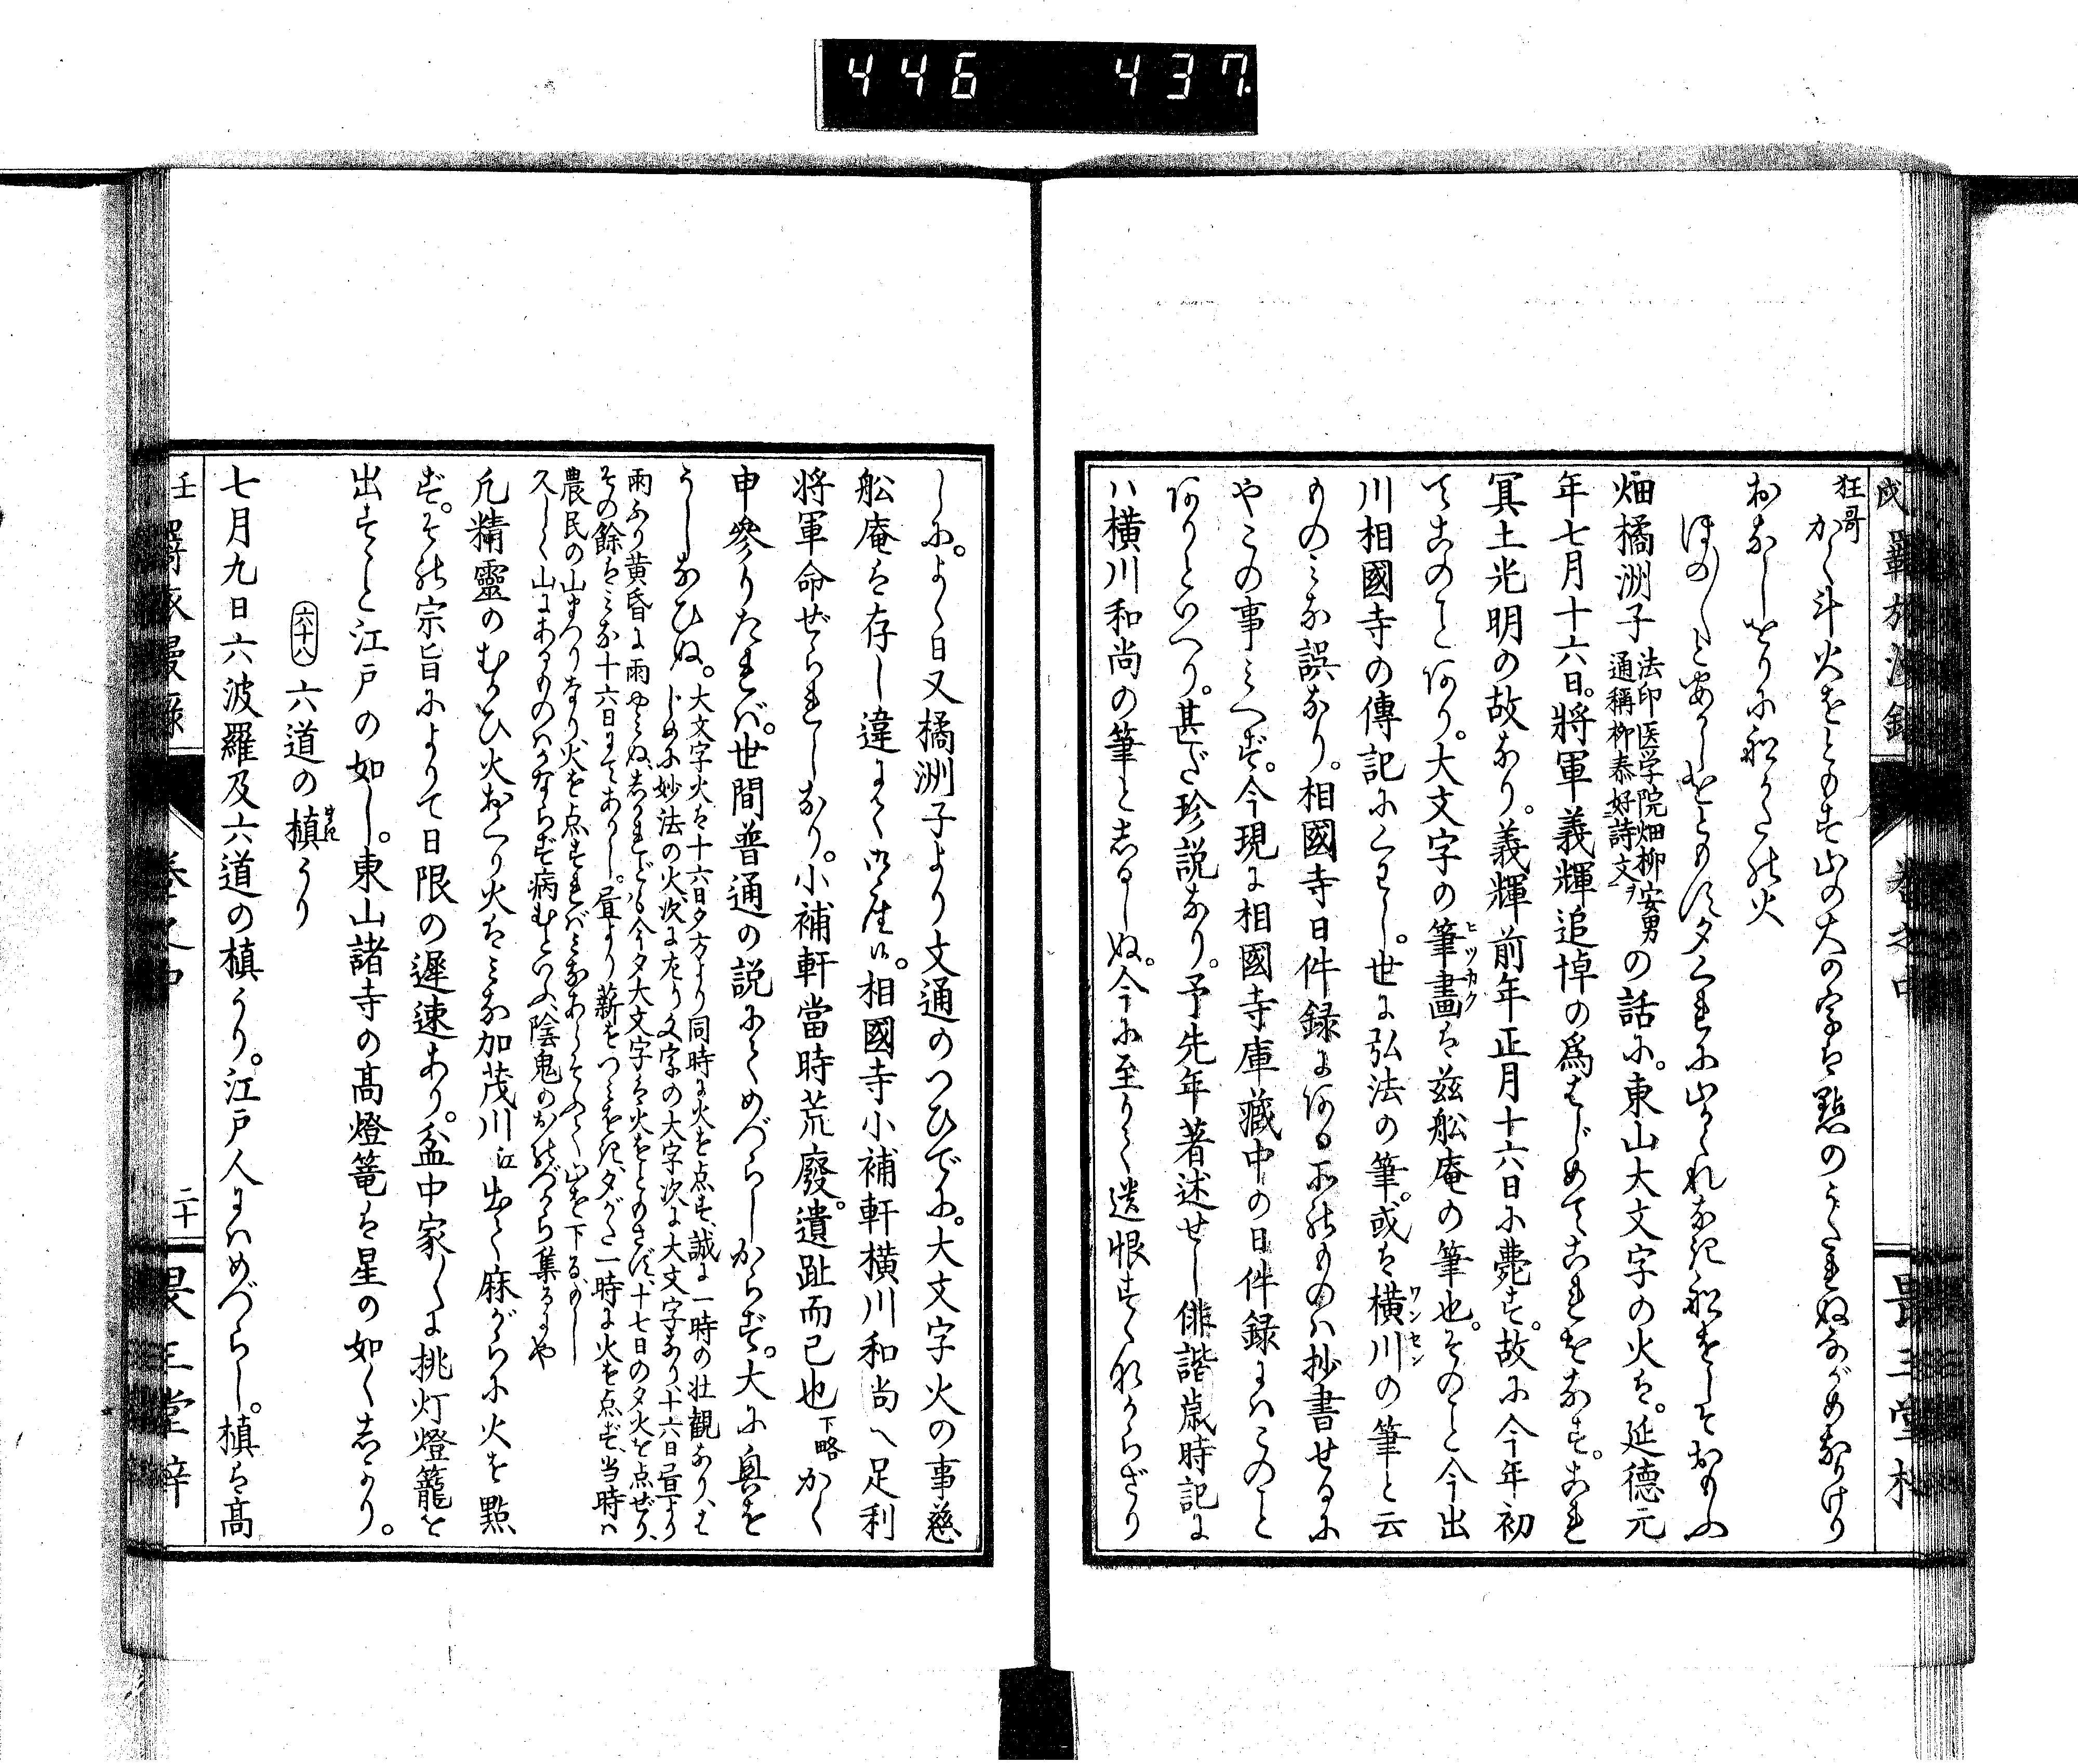 446 437
狂哥
かく斗火をともす山の大の字は點のうたれぬながめなりけり
おなしをりに船かたの火
ほの〳〵と安かしをともす夕くれに山かくれなき船をしそおもふ
畑橘洲子法印医学院畑柳安男通稱柳泰好詩文ヲの話に。東山大文字の火は。延徳元
年七月十六日。將軍義輝追悼の爲はじめてこれをなす。これ
冥土光明の故なり。義輝前年正月十六日に薨す。故に今年初
てこのことあり。大文字の筆畫ヒツカクは茲舩庵の筆也。そのこと今出
川相國寺の傳記にくはし。世に弘法の筆。或は横川ワンセンの筆と云
ものみな誤なり。相國寺日件録にある所のものハ抄書せるに
やこの事みへず。今現に相國寺庫藏中の日件録にハこのこと
ありといへり。甚だ珍説なり。予先年著述せし俳諧歳時記に
ハ横川和尚の筆としるしぬ。今に至りて遺恨すくなからざり
しに。よく日又橘洲子より文通のつひでに。大文字火の事慈
舩庵は存し違にて御座候。相國寺小補軒横川和尚へ足利
將軍命ぜられしなり。小補軒當時荒廢。遺趾而已也下略かく
申參りたれバ。世間普通の説にてめづらしからず。大に興を
うしなひぬ。大文字火は十六日夕方より同時に火を点す、誠に一時の壮観なり、は
じめに妙法の火、次に左り文字の大字次に大文字なり、十六日昼より
雨ふり黄昏に雨やみぬ、しかれども今夕大文字は火をともさず、十七日の夕火を点ぜり、
その餘はみな十六日にてありし。昼より薪をつみをき、夕がた一時に火を点ず、当時ハ
農民の山まつりなり、火を点すれバみなあらそふて山を下るよし
久しく山にあるものハかならず病むといふ、陰鬼のおのづから集るにや
凡精靈のむかひ火おくり火はみな加茂川江出て麻がらに火を點
ず。その宗旨によりて日限の遲速あり。盆中家々に挑灯燈籠を
出すこと江戸の如し。東山諸寺の髙燈篭は星の如くしかり。
六十八 六道の槙まきうり
七月九日六波羅及六道の槙うり。江戸人にハめづらし。槙は髙
二十